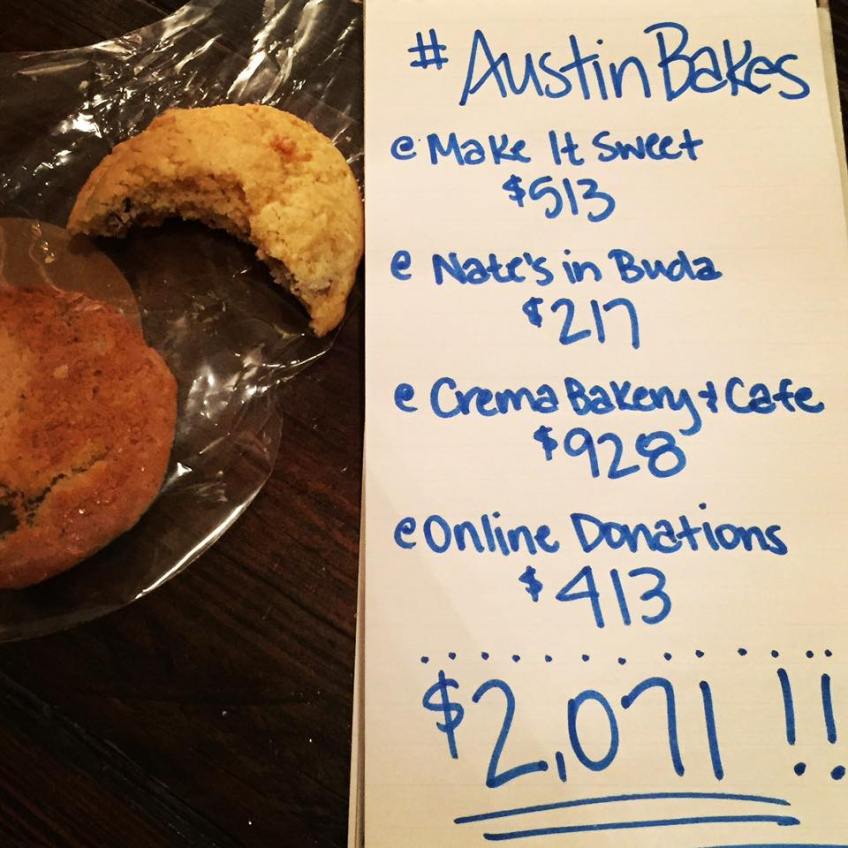 # Austin Bakes
@ Make It Sweet
$513
@ Nate's in Buda
$217
@ Crema Bakery & Cafe
$928
@ Online Donations
$413
$2,071!!